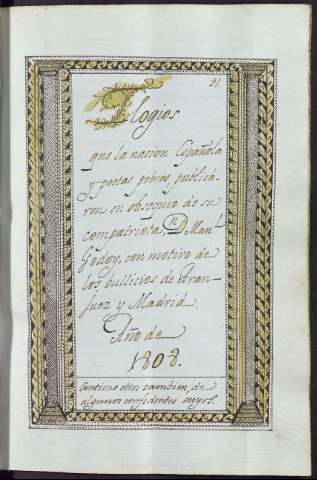 91.
Elogios
que la nacion Española
y poetas pobres, publica-
ron en obsequio de su
compatriota, D. Man.l
Godoy, con motivo de
los bullicios de Aran-
juez y Madrid.
Año de
1808.
Contiene otros tambien, de
algunos confidentes suyos.